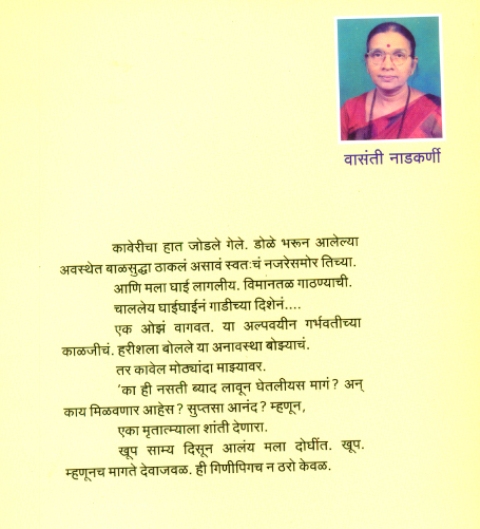 वासंती नाडकर्णी
कावेरीचा हात जोडले गेले. डोळे भरून आलेल्या
अवस्थेत बाळसुद्धा ठाकलं असावं स्वतःचं नजरेसमोर तिच्या.
आणि मला घाई लागलीय. विमानतळ गाठण्याची.
चाललेय घाईघाईनं गाडीच्या दिशेनं....
एक ओझं वागवत. या अल्पवयीन गर्भवतीच्या
काळजीचं. हरीशला बोलले या अनावस्था बोझ्याचं.
तर कावेल मोठ्यांदा माझ्यावर.
'का ही नसती ब्याद लावून घेतलीयस मागं ? अन्
काय मिळवणार आहेस ? सुप्तसा आनंद ? म्हणून,
एका मृतात्म्याला शांती देणारा.
खूप साम्य दिसून आलंय मला दोघींत. खूप.
म्हणूनच मागते देवाजवळ. ही गिणीपिगच न ठरो केवळ.